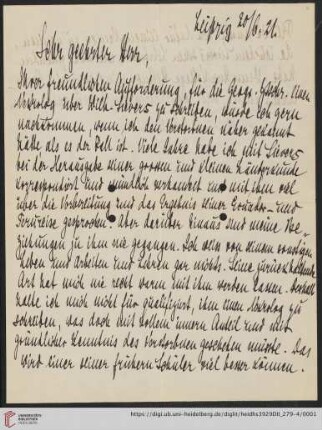 Leipzig 20/6. 21.
Sehr geehrter Herr,
Ihrer freundlichen Aufforderung, für die Geogr. Zeitschr. einen
Nekrolog über Wilh. Sievers zu schreiben, würde ich gern
nachkommen, wenn ich den Verstorbenen näher gekannt
hätte als es der Fall ist. Viele Jahre habe ich mit Sievers
bei der Herausgabe seiner grossen und kleinen Länderkunde
korrespondiert und mündlich verhandelt und mit ihm viel
über die Vorbereitung und das Ergebnis seiner Ecuador- und
Perureise gesprochen. Aber darüber hinaus sind meine Be-
ziehungen zu ihm nie gegangen. Ich weiss von seinem sonstigen
Leben und Arbeiten und Lehren gar nichts. Seine zurückhaltende
Art hat mich nie recht warm mit ihm werden lassen. Deshalb
halte ich mich nicht für qualifiziert, ihm einen Nekrolog zu
schreiben, was doch mit vollem innern Anteil und mit
gründlicher Kenntnis des Verstorbenen geschehen müsste. Das
wird einer seiner frühern Schüler viel besser können.
https://digi.ub.uni-heidelberg.de/diglit/heidhs3929DII_279-4/0001